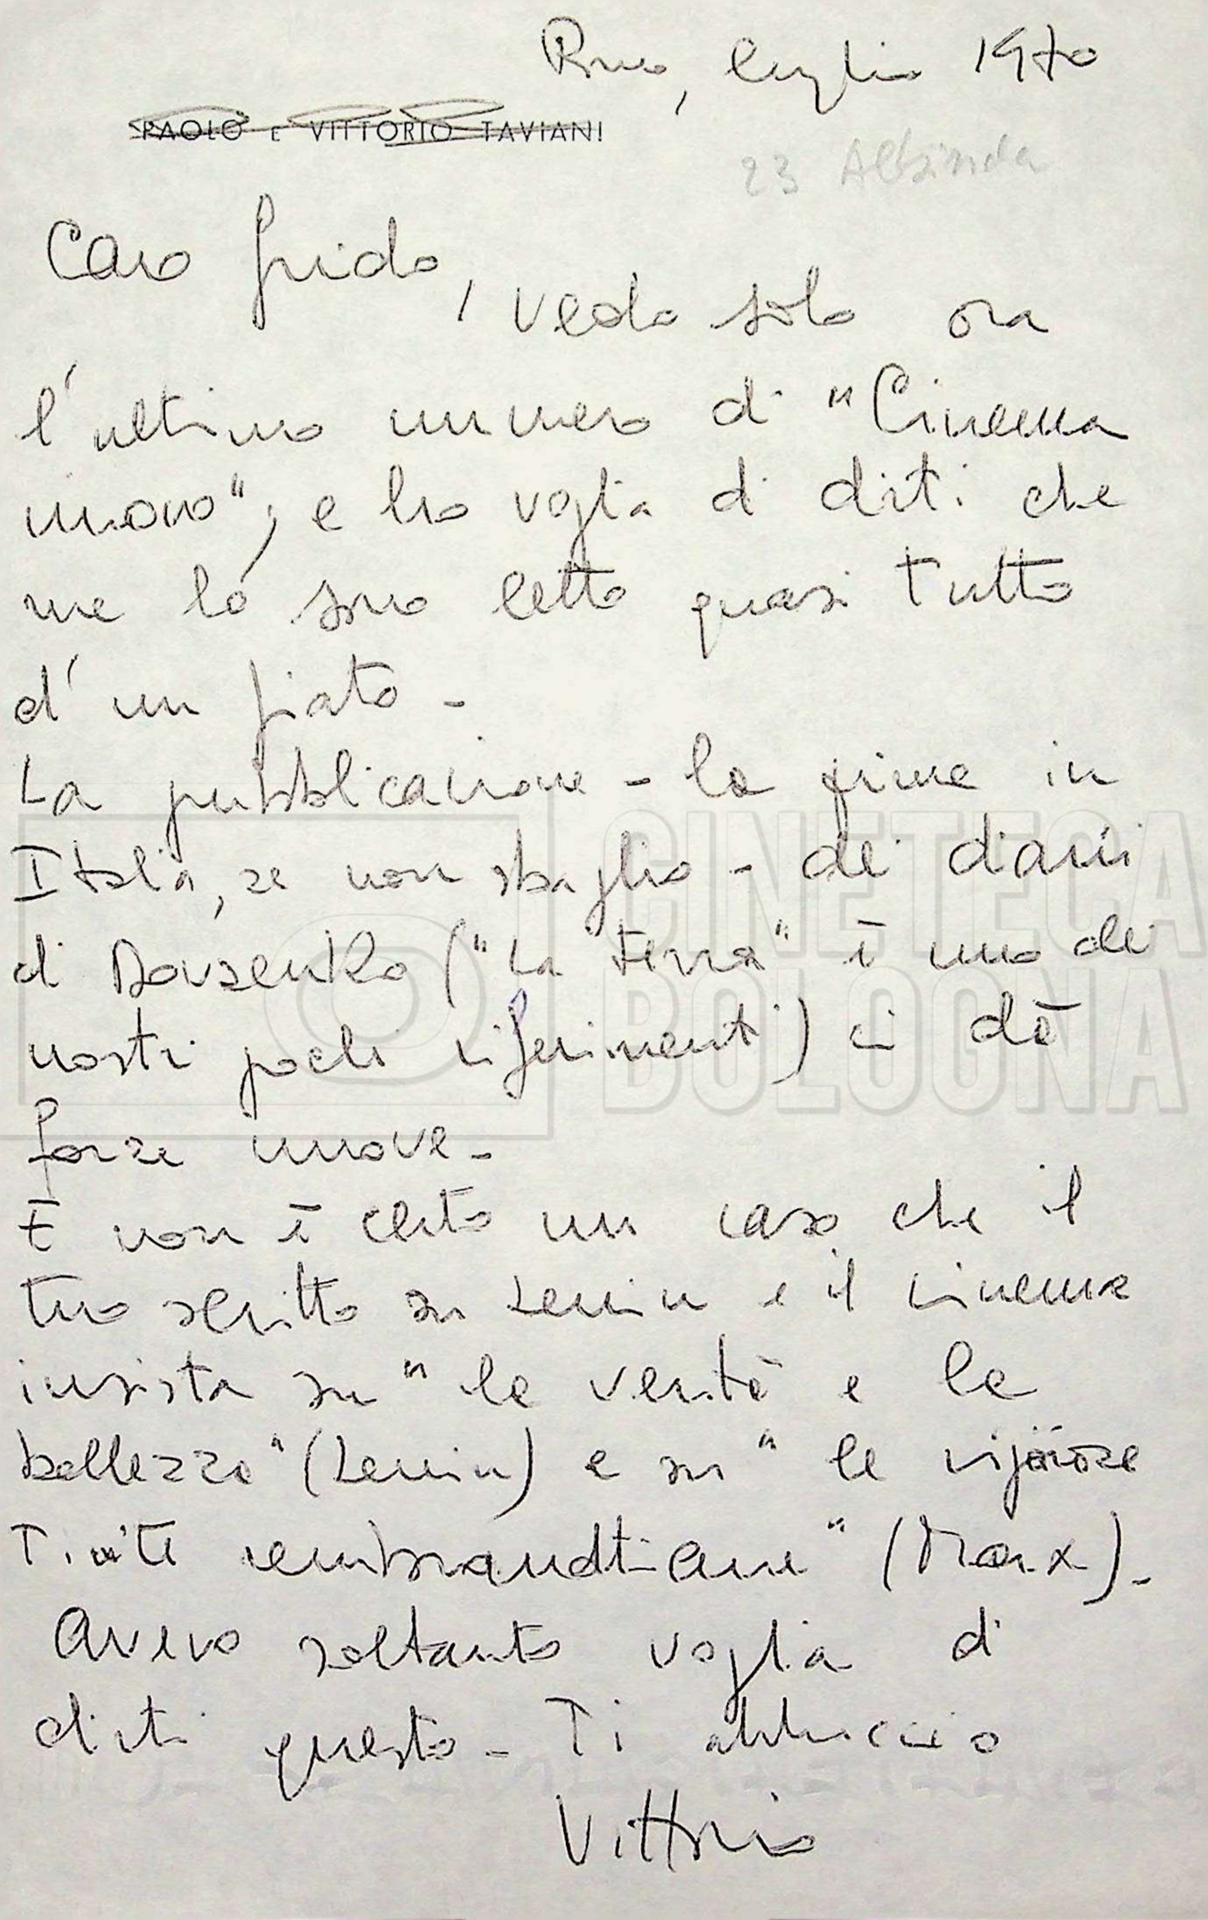 Roma, luglio 1970
PAOLO E VITTORIO TAVIANI
23
Caro Guido, vedo solo ora
l'ultimo numero di "Cinema
nuovo", e ho voglia di dirti che
me lo sono letto quasi tutto
d'un fiato -
La pubblicazione - la prima in
Italia, se non sbaglio - dei diari
di Dovzenko ("La terra" è uno dei
nostri pochi riferimenti) ci dà
forze nuove -
E non è certo un caso che il
tuo scritto su Lenin e il cinema
insista su "la verità e la
bellezza" (Lenin) e su "le vigorose
tinte rembrandtiane" (Marx) -
Avevo soltanto voglia di
dirti questo - Ti abbraccio
Vittorio
CINETECA
BOLOGNA